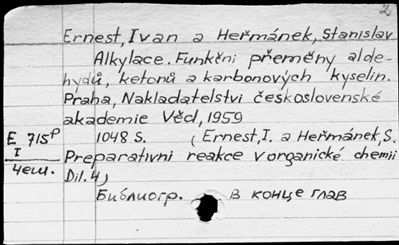 2
Ernest, Ivan a Heřmánek, Stanislav
Alkylace. Funkčni přeměny alde-
hydů, ketonů a karbonových kyselin.
Praha, Nakladatelstvi československé
akademie Věd, 1959
E 715ᵖ 1048 S. (Ernest, I. a Heřmánek, S.
I Preparativni reakce v organické chemii
4еш. Dil. 4)
Библиогр. в конце глав